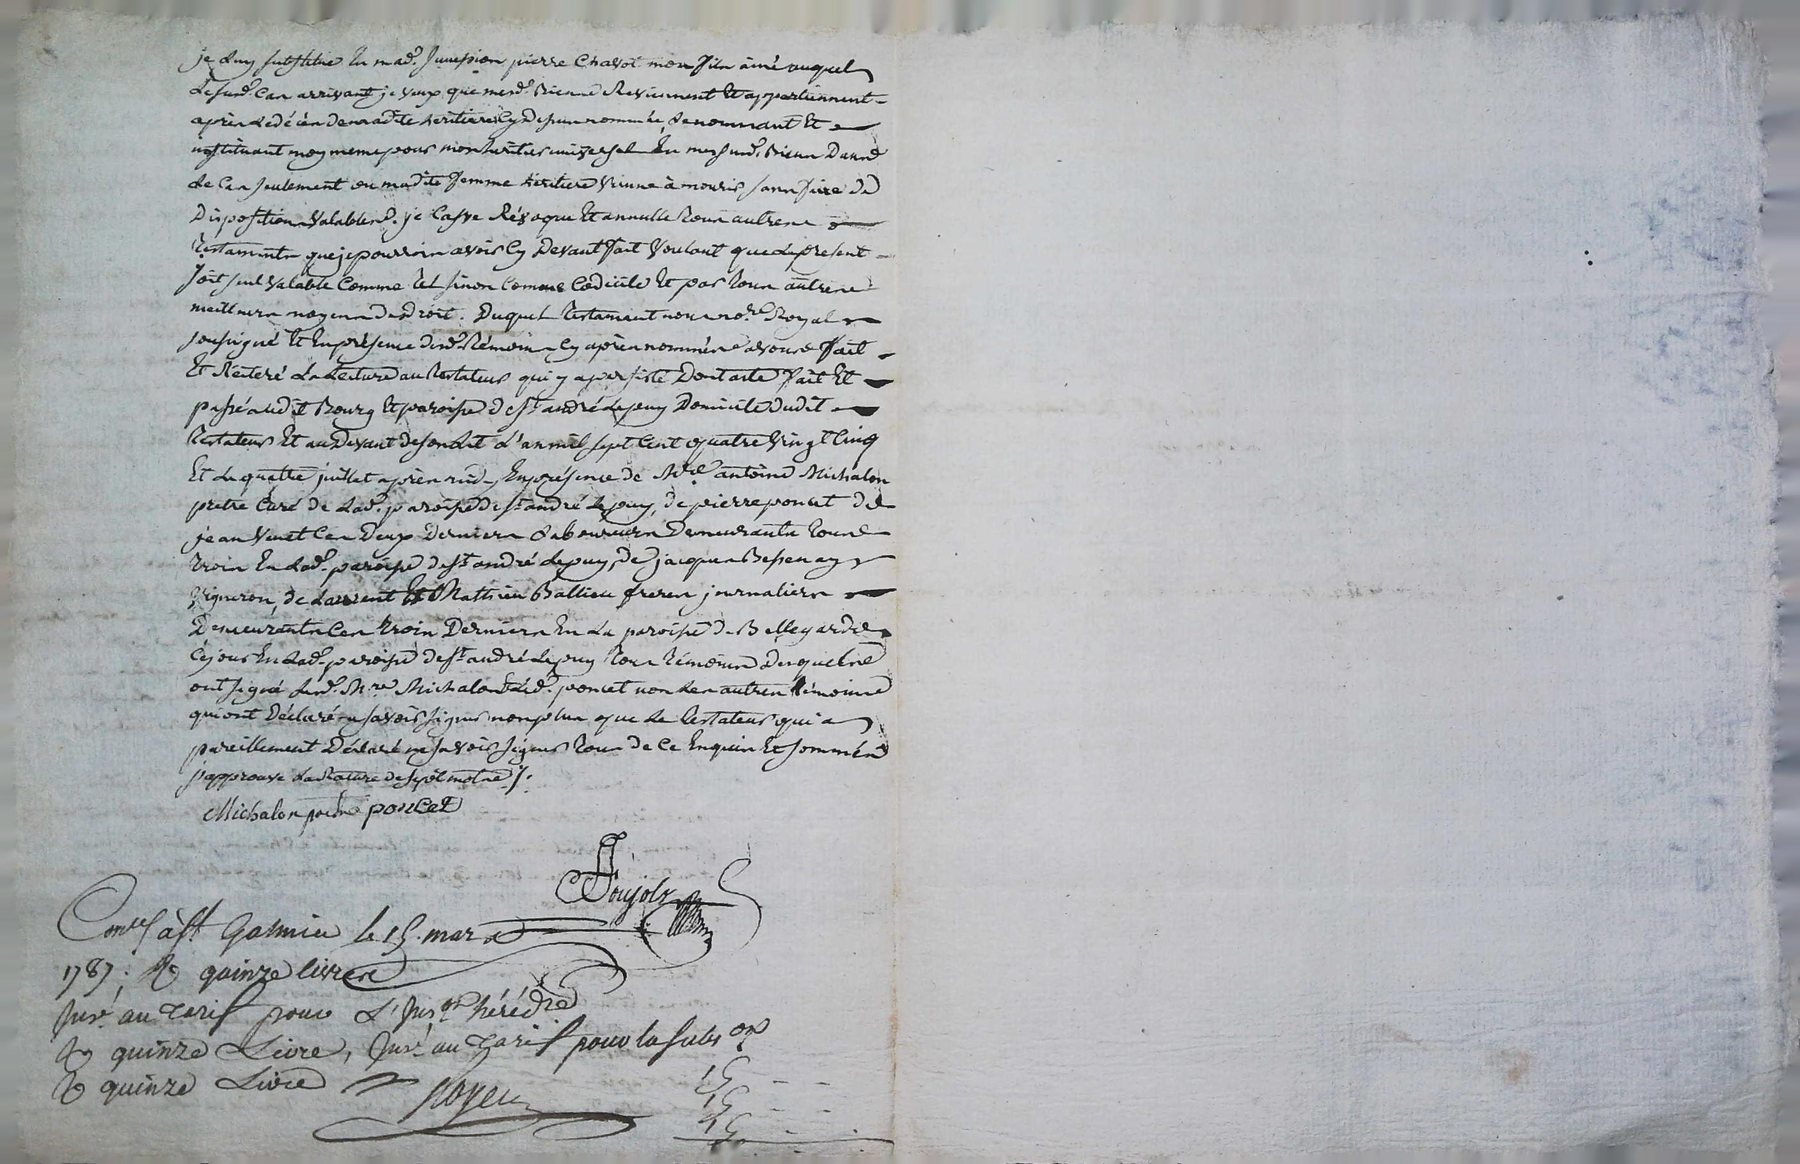 je luy substitue en mad. succession pierre Chavot mon fils ainé auquel
Le susd. Cas arrivant je veux que mesd. Biens Reviennent Et appartiennent
après Le décès de madite heritiere Cy Dessus nommée, Le nommant Et
instituant moy meme pour mon heritier universel En mes susd. Biens Dans
Le Cas seulement ou madite femme héritiere Vienne à mourir sans faire de
Disposition Valables. je Casse Révoque Et annulle Tous autres
Testaments que je pourrois avoir Cy Devant fait Voulant que Le present
soit seul Valable Comme tel sinon Comme Codicile Et par Tous autres
meilleurs moyens de Droit. Duquel Testament nous no.re Royal
soussigné Et En présence desd. Témoins Cy après nommés avons fait
Et Réiteré La Lecture au Testateur qui y a persisté Dont acte fait Et
passé audit Bourg Et paroisse de St andré Le puy Domicile dudit
Testateur Et au Devant de son Lit L'an mil sept Cent quatre Vingt Cinq
Et Le quatre juillet après midy En présence de M.re antoine Michalon
pretre Curé de Lad. paroisse de St andré Le puy, de pierre poncet de
jean Venet Ces Deux Derniers Laboureurs Demeurants Tous
Trois En Lad. paroisse de St andré Le puy, de jacques Bessenay
Vigneron, de Laurent Et Mathieu Ballieu freres journaliers
Demeurants Ces Trois Derniers En La paroisse de Bellegarde
Ce jour En Lad. paroisse de St andré Le puy Tous Témoins Desquels
ont signé Led. M.re Michalon Et Led. poncet non Les autres Témoins
qui ont Déclaré ne savoir signer non plus que Le Testateur qui a
pareillement Déclaré ne savoir signer Tous de Ce Enquis Et sommés
j'approuve La Rature de sept mots ./.
Michalon poncet
Poujols
Con.lé à St Galmier le 15. mars
1787. R. quinze livres
Ins.é au Tarif pour L'ins.on hérédre
R. quinze Livre, Ins.é au Tarif pour la subs.on
R. quinze Livre
15
15
15